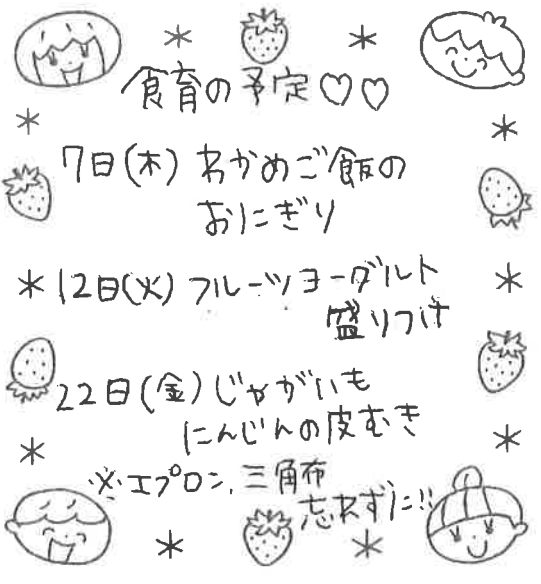 食育の予定♡♡
7日(木) わかめご飯の
おにぎり
12日(火) フルーツヨーグルト
盛りつけ
22日(金) じゃがいも
にんじんの皮むき
※エプロン、三角布
忘れずに!!